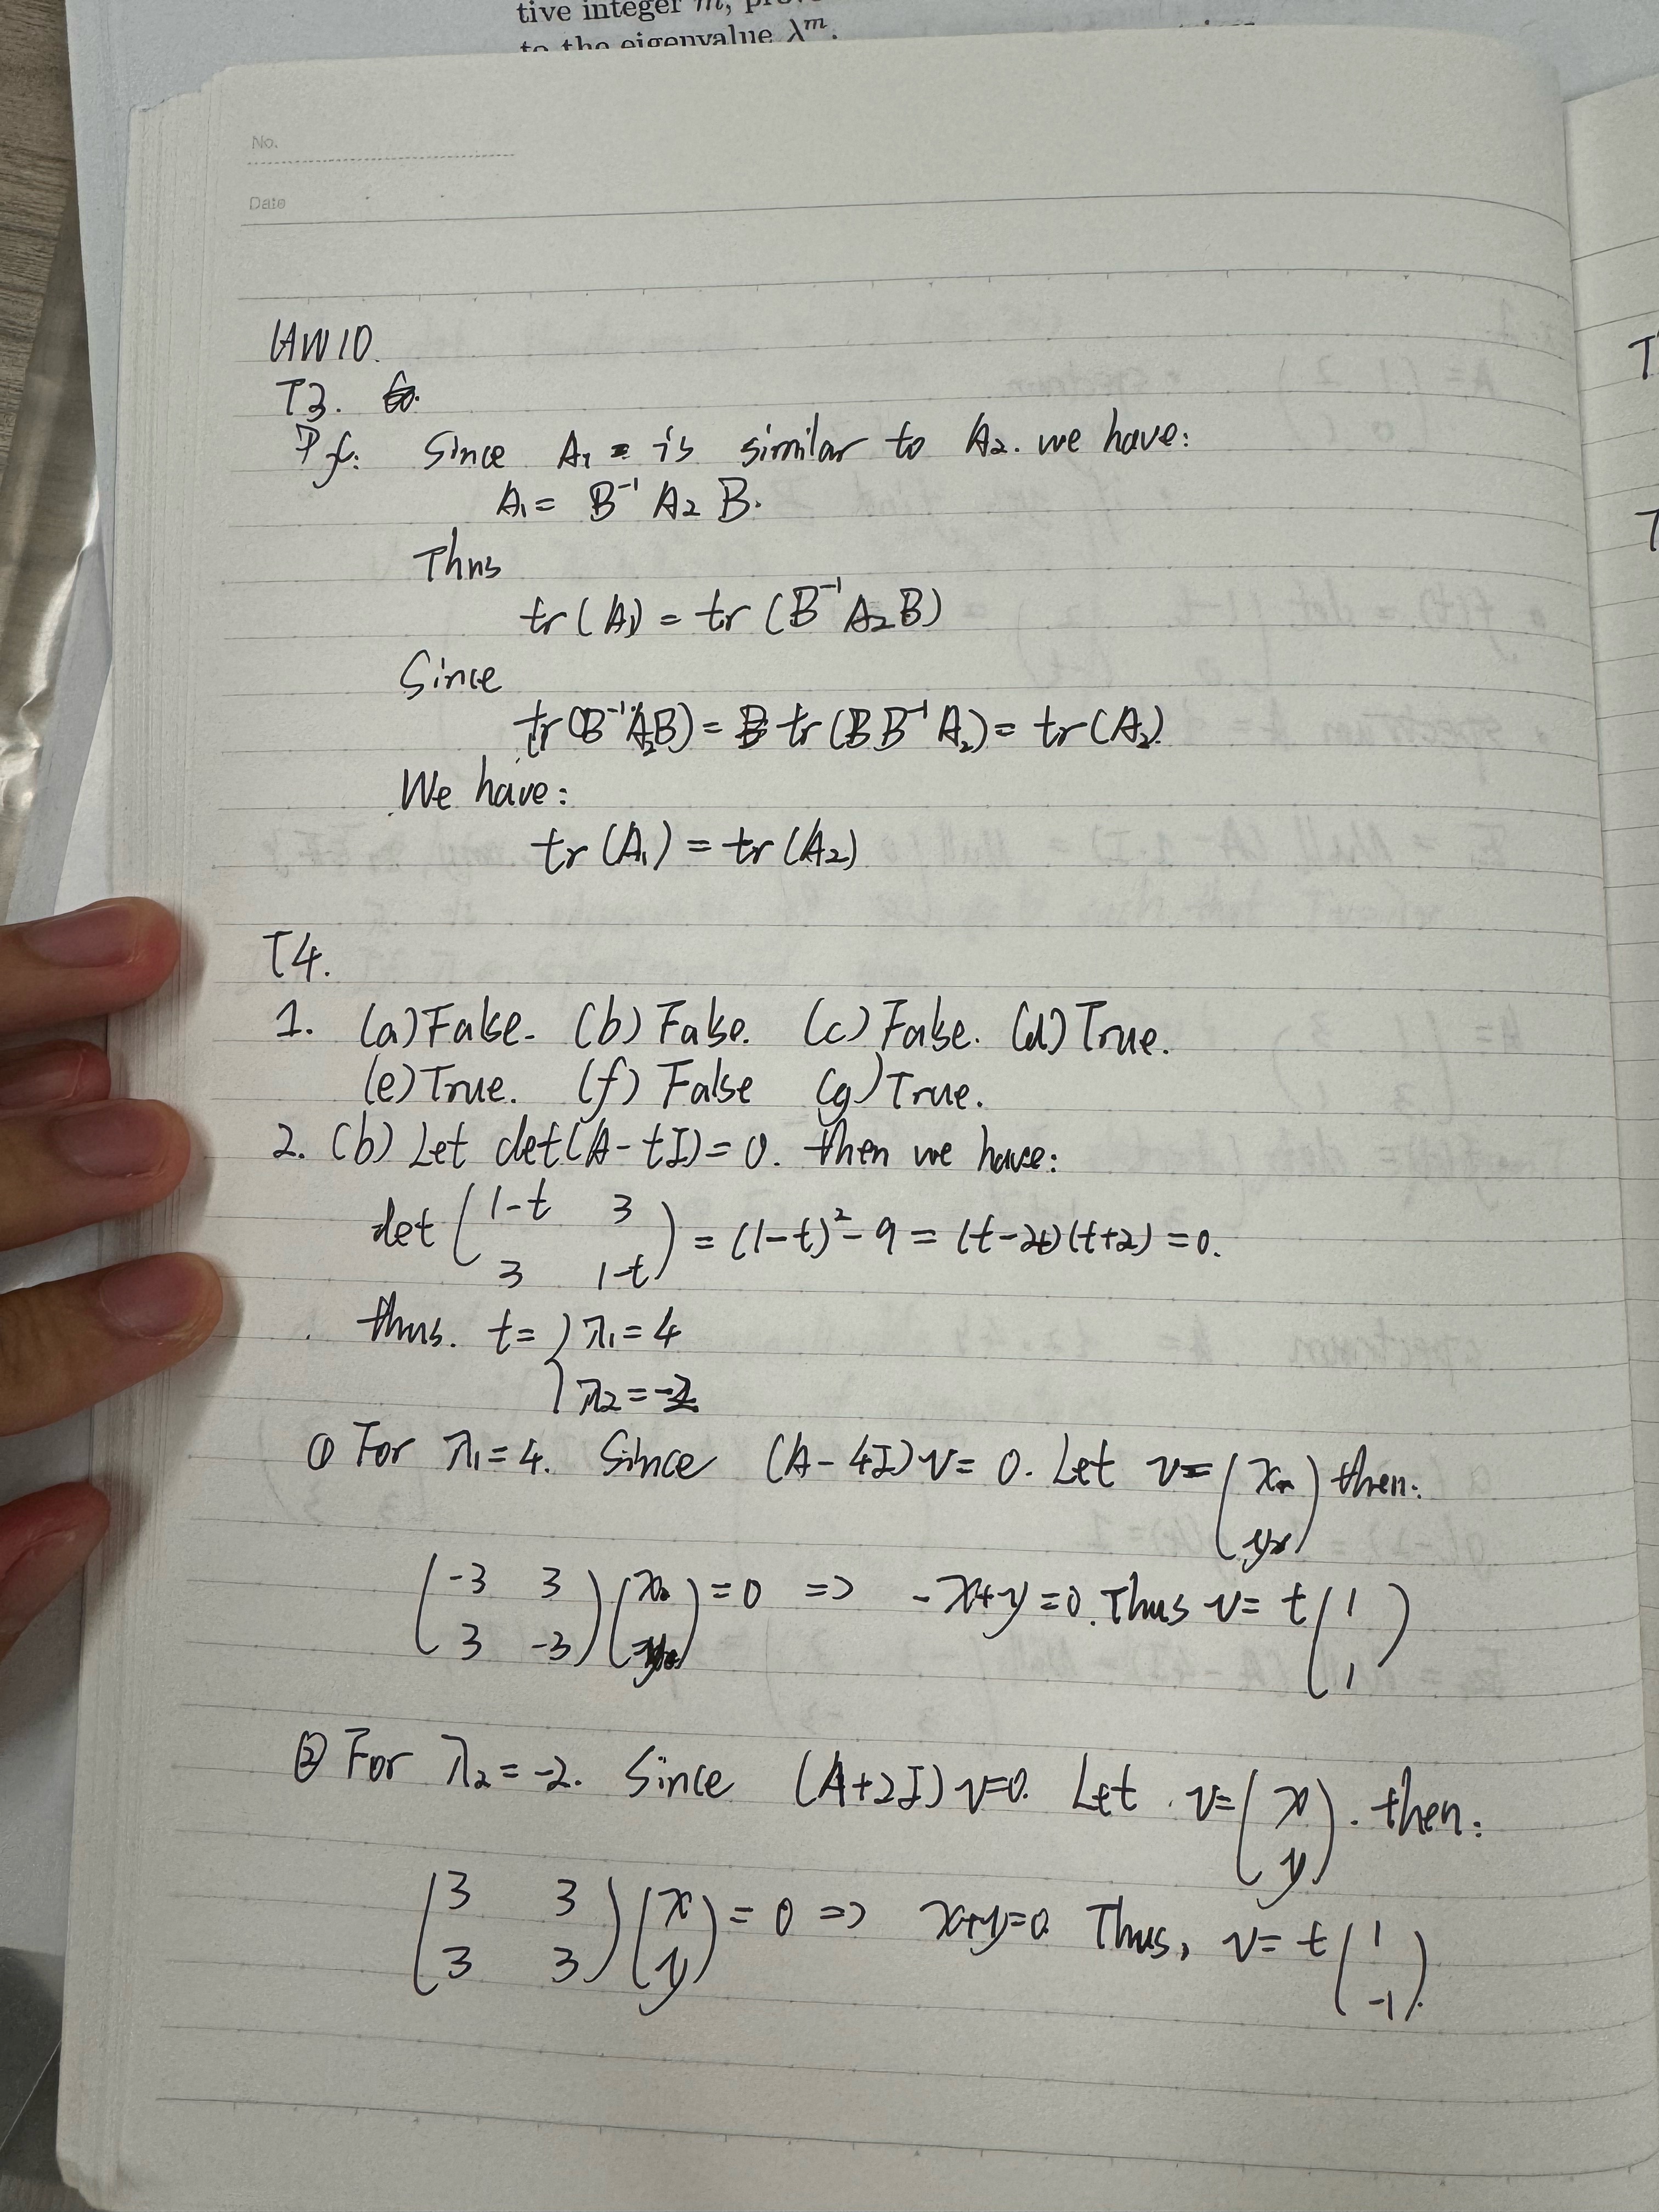 tive integer m,
to the eigenvalue λ^m.
No.
Date
HW10.
T3.
Pf: Since A₁ is similar to A₂. we have:
A₁ = B⁻¹ A₂ B.
Thus
tr(A₁) = tr(B⁻¹A₂B)
Since
tr(B⁻¹A₂B) = tr(BB⁻¹A₂) = tr(A₂).
We have:
tr(A₁) = tr(A₂)
T4.
1. (a) False. (b) False. (c) False. (d) True.
(e) True. (f) False (g) True.
2. (b) Let det(A-tI)=0. then we have:
det ( 1-t 3
3 1-t ) = (1-t)² - 9 = (t-4)(t+2) = 0.
thus. t = { λ₁ = 4
λ₂ = -2
① For λ₁=4. Since (A-4I)v=0. Let v= ( x
y ) then:
( -3 3
3 -3 ) ( x
y ) = 0 => -x+y=0. Thus v= t ( 1
1 )
② For λ₂=-2. Since (A+2I)v=0. Let v= ( x
y ). then:
( 3 3
3 3 ) ( x
y ) = 0 => x+y=0 Thus, v= t ( 1
-1 ).